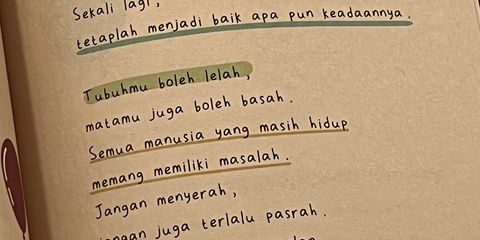 Sekali lagi,
tetaplah menjadi baik apa pun keadaannya.
Tubuhmu boleh lelah,
matamu juga boleh basah.
Semua manusia yang masih hidup
memang memiliki masalah.
Jangan menyerah,
jangan juga terlalu pasrah.